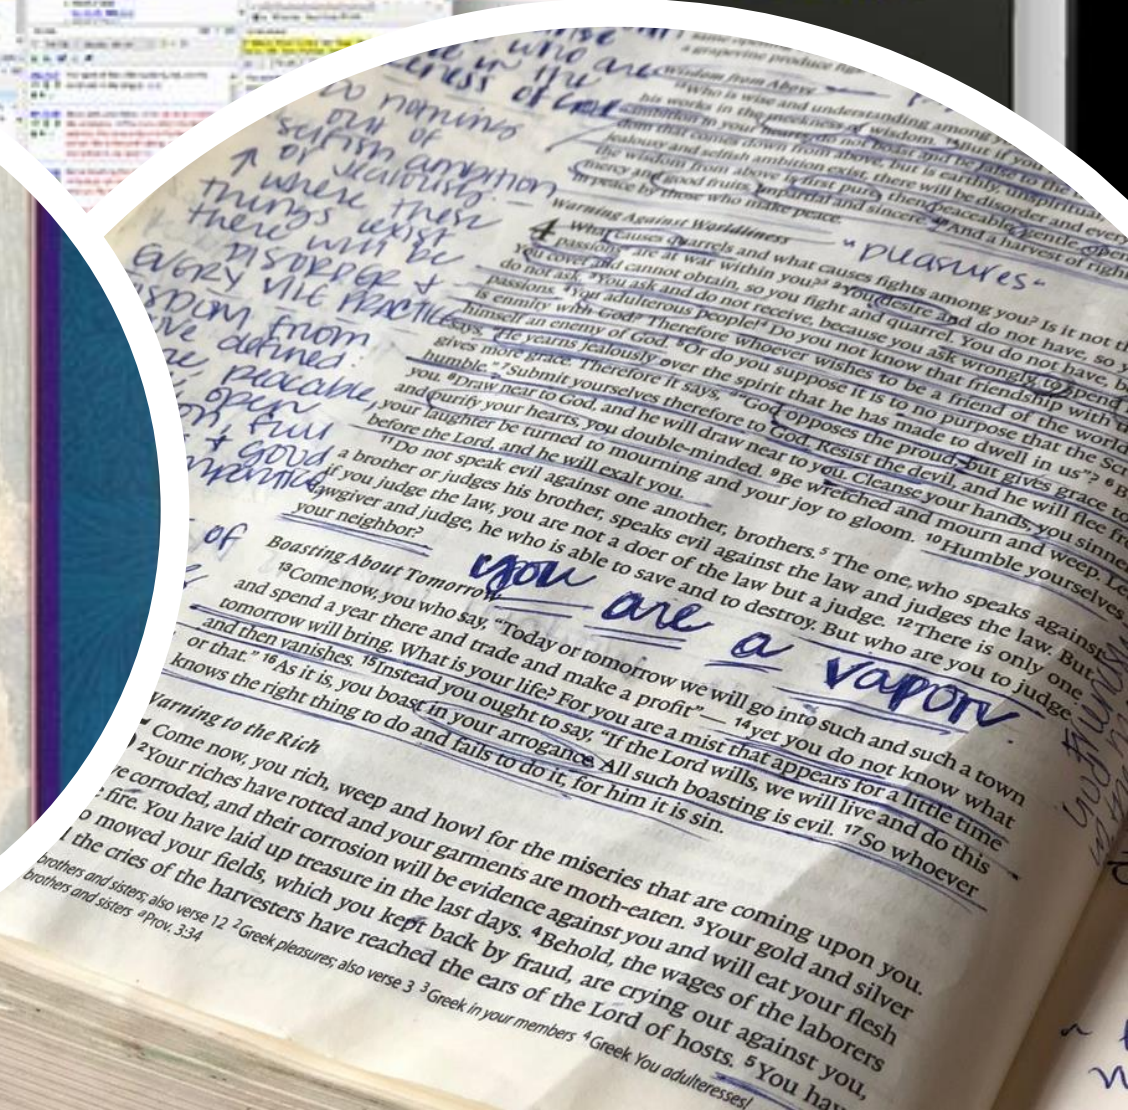 who are
in the
ness of
Do nothing
out of
selfish ambition
or jealously.
↑ where these
things exist
there will be
DISORDER &
EVERY VILE PRACTICE
from
defined:
peaceable
open
full
& good
of
a grapevine produce
Wisdom from Above
¹³Who is wise and understanding among
his works in the meekness of wisdom. ¹⁴But if you
ambition in your hearts, do not boast and be false to the
dom that comes down from above, but is earthly, unspiritual
jealousy and selfish ambition exist, there will be disorder and every
the wisdom from above is first pure, then peaceable, gentle, open
mercy and good fruits, impartial and sincere. ¹⁸And a harvest of
in peace by those who make peace.
Warning Against Worldliness
"pleasures"
4 What causes quarrels and what causes fights among you? Is it not
passions² are at war within you?³ ²You desire and do not have, so
You covet and cannot obtain, so you fight and quarrel. You do not have,
do not ask. ³You ask and do not receive, because you ask wrongly, to spend
passions. ⁴You adulterous people!⁴ Do you not know that friendship with
is enmity with God? Therefore whoever wishes to be a friend of the world
himself an enemy of God. ⁵Or do you suppose it is to no purpose that the
says, "He yearns jealously over the spirit that he has made to dwell in us"? ⁶
gives more grace. Therefore it says, "God opposes the proud but gives grace to
humble." ⁷Submit yourselves therefore to God. Resist the devil, and he will flee
you. ⁸Draw near to God, and he will draw near to you. Cleanse your hands, you
and purify your hearts, you double-minded. ⁹Be wretched and mourn and weep.
your laughter be turned to mourning and your joy to gloom. ¹⁰Humble yourselves
before the Lord, and he will exalt you.
¹¹Do not speak evil against one another, brothers.⁵ The one who speaks against
a brother or judges his brother, speaks evil against the law and judges the law. But
if you judge the law, you are not a doer of the law but a judge. ¹²There is only one
lawgiver and judge, he who is able to save and to destroy. But who are you to judge
your neighbor?
you are a vapor.
Boasting About Tomorrow
¹³Come now, you who say, "Today or tomorrow we will go into such and such a town
and spend a year there and trade and make a profit"— ¹⁴yet you do not know what
tomorrow will bring. What is your life? For you are a mist that appears for a little time
and then vanishes. ¹⁵Instead you ought to say, "If the Lord wills, we will live and do this
or that." ¹⁶As it is, you boast in your arrogance. All such boasting is evil. ¹⁷So whoever
knows the right thing to do and fails to do it, for him it is sin.
Warning to the Rich
Come now, you rich, weep and howl for the miseries that are coming upon you.
²Your riches have rotted and your garments are moth-eaten. ³Your gold and silver
corroded, and their corrosion will be evidence against you and will eat your flesh
fire. You have laid up treasure in the last days. ⁴Behold, the wages of the laborers
mowed your fields, which you kept back by fraud, are crying out against you,
the cries of the harvesters have reached the ears of the Lord of hosts. ⁵You
brothers and sisters; also verse 12 ²Greek pleasures; also verse 3 ³Greek in your members ⁴Greek You adulteresses!
brothers and sisters ᵃProv. 3:34